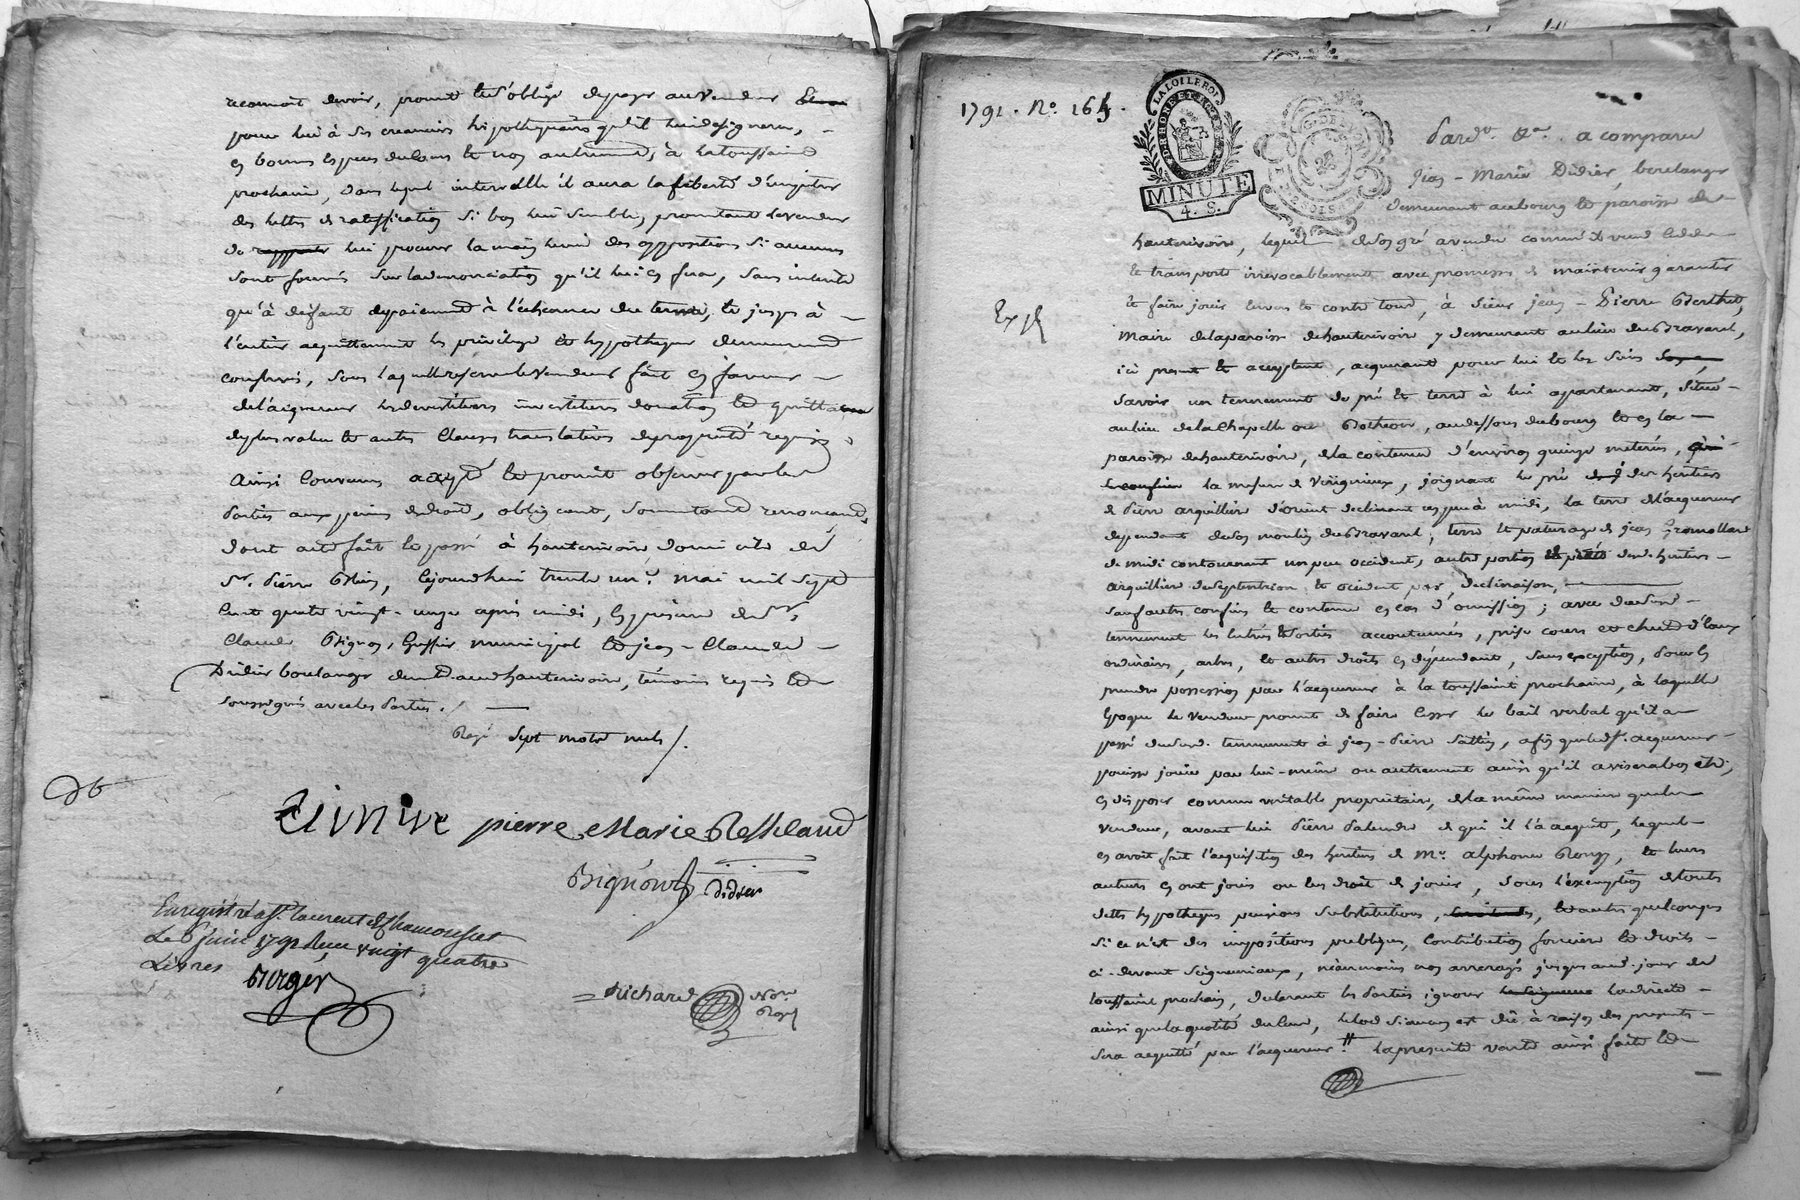 reconnoit devoir, promet et s'oblige de payer au vendeur
pour lui à ses creanciers hipothequaires qu'il lui designera,
en bonnes especes de cours et non autrement, à la toussaint
prochaine, dans lequel intervalle il aura la liberté d'impetrer
des lettres de ratiffication si bon lui semble, promettant le vendeur
de lui procurer la main levée des oppositions si aucunes
sont formées sur la denonciation qu'il lui en fera, sans interêt
qu'à deffaut de paiement à l'échéance du terme, et jusqu'à
l'entier acquittement les privilege et hypotheque demeurent
conservés, sous laquelle reserve le vendeur fait en faveur
de l'acquereur les devestitures investitures donation et quittance
de plus value et autres clauses translatives de propriété requises.
Ainsi convenu accepté et promit observer par les
parties aux peines de droit, obligeant, soumettant renonceant,
dont acte fait et passé à hauterivoire domicile de
Sr. Pierre, cejourdhui trente un mai mil sept
cent quatre vingt-onze après midi, en presence de Sr.
Claude Bignon, Greffier municipal et jean-Claude
Didier boulanger demt. aud. hauterivoire, témoins requis et
soussignés avec les Parties.
Rayé sept mots nuls
pierre Marie
Bignon Didier
Enregistré à St. laurent de Chamousset
Le 6 juin 1791 Reçu vingt quatre
Livres Berger
Richard Nore. Royl
1791. No. 165.
LA LOI LE ROI
D. RHONE ET LOIRE
MINUTE
4. S.
Pardt. &a. a comparu
Jean-Marie Didier, boulanger
demeurant au bourg et paroisse de
hauterivoire, lequel de son gré a vendu comme il vend cede
et transporte irrevocablement avec promesse de maintenir garantir
et faire jouir envers et contre tous, à sieur jean-Pierre Berthet,
Exp.
Maire de la paroisse de hauterivoire y demeurant au lieu du Bravard,
ici present et acceptant, acquerant pour lui et les siens
Savoir un tennement de pré et terre à lui appartenant, situé
au lieu de la Chapelle ou, au dessous du bourg et en la
paroisse de hauterivoire, de la contenue d'environ quinze meterés,
la mesure de Virigneux, joignant le pré des heritiers
de Pierre arquillier d'orient declinant un peu à midi, la terre de l'acquereur
dependant de son moulin du Bravard, terre et paturage de jean Gromollard
de midi contournant un peu occident, autre portion desd. heritiers
arquillier de septentrion et occident par declinaison,
sauf autres confins et contenue en cas d'omission; avec dudit
tennement les entrées et sorties accoutumées, prise cours et chute d'eaux
ordinaires, arbres, et autres droits en dépendant, sans exception, pour en
prendre possession par l'acquereur à la toussaint prochaine, à laquelle
époque le vendeur promet de faire cesser le bail verbal qu'il a
passé dudt. tennement à jean-Pierre, afin que led. Sr. acquereur
puisse jouir par lui-même ou autrement ainsi qu'il avisera bon être,
en disposer comme veritable proprietaire, de la même maniere que le
vendeur, avant lui Pierre de qui il l'a acquit, lequel
en avoit fait l'acquisition des heritiers de Mr. alphonse, et leurs
auteurs en ont joui ou eu droit de jouir, sous l'exemption de toutes
dettes hypotheques pensions substitutions, et autres quelconques
si ce n'est des impositions publiques, Contribution fonciere et droits
ci-devant seigneuriaux, néanmoins sans arrerages jusques aud. jour de
toussaint prochain, declarant les parties ignorer la directe
ainsi que la quotité du cens, le lod si aucun est dû à raison des presentes
sera acquitté par l'acquereur. La presente vente ainsi faite